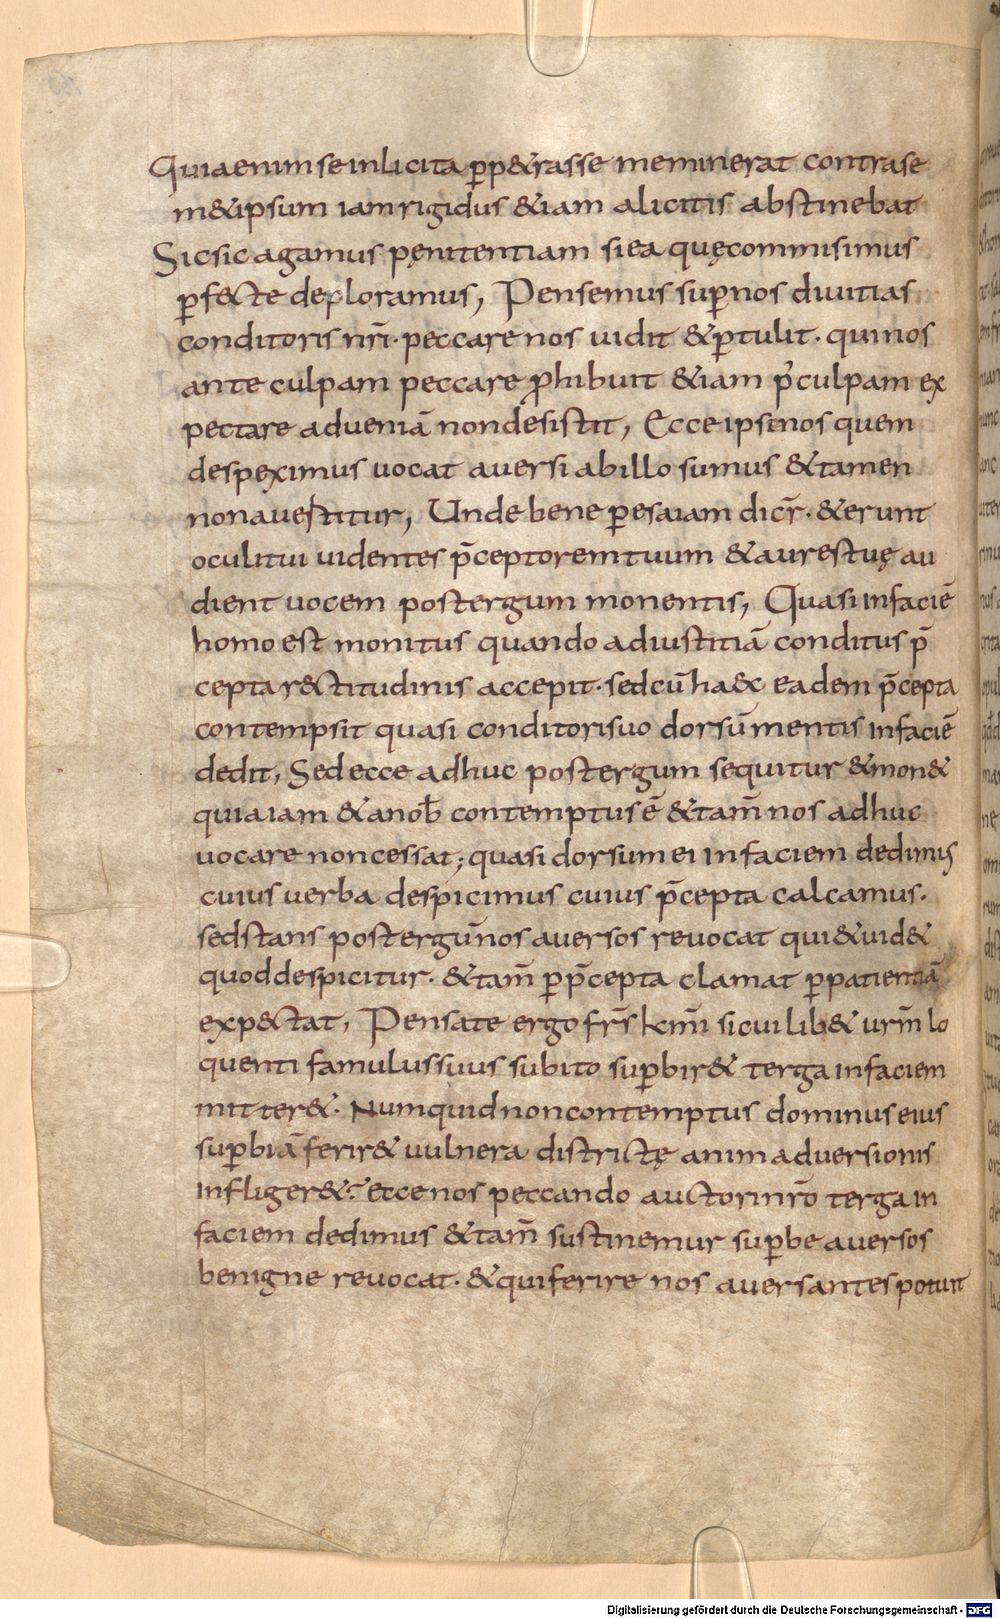 Quia enim se inlicita ꝑp&rasse meminerat contra se
m&ipsum iam rigidus &iam a licitis abstinebat
Sic sic agamus pęnitentiam si ea quę commisimus
ꝑf&cte deploramus, Pensemus suꝑ nos diuitias
conditoris nr̄i· peccare nos uidit &ꝑtulit· qui nos
ante culpam peccare ꝓhibuit &iam p̄ culpam ex
pectare ad ueniā non desistit, Ecce ipse nos quem
despeximus uocat auersi ab illo sumus &tamen
non auertitur, Unde bene ꝑ esaiam dicr̄· &erunt
oculi tui uidentes p̄ceptorem tuum &aures tuę au
dient uocem post ergum monentis, Quasi in faciē
homo est monitus quando ad iustitiā conditus p̄
cepta r&ctitudinis accepit· sed cū haec eadem p̄cepta
contempsit quasi conditori suo dorsū mentis in faciē
dedit, Sed ecce adhuc post ergum sequitur &mon&
quia iam &a nob̄ contemptus ē &tam̄ nos adhuc
uocare non cessat; quasi dorsum ei in faciem dedimus
cuius verba despicimus cuius p̄cepta calcamus·
sed stans post ergū nos auersos reuocat qui &uid&
quod despicitur· &tam̄ ꝑ p̄cepta clamat ꝑ patientiā
exp&ctat, Pensate ergo fr̄s km̄i si cuilib& ur̄m lo
quenti famulus suus subito suꝑbir& terga in faciem
mitter&· Numquid non contemptus dominus eius
suꝑbiā ferir& uulnera districtę animaduersionis
infliger&? ecce nos peccando auctori nr̄o terga in
faciem dedimus &tam̄ sustinemur suꝑbe auersos
benigne reuocat· &qui ferire nos auersantes potuit
Digitalisierung gefördert durch die Deutsche Forschungsgemeinschaft - DFG